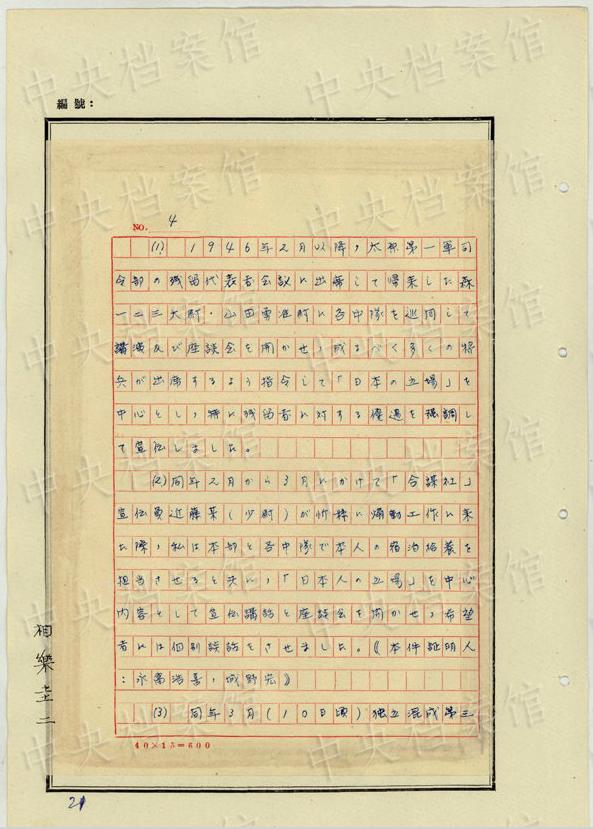 編號：
NO. 4
(1) 1946年2月以降，太原第一軍司
令部の残留代表者会議に出席して帰来した森
一二三大尉・山田 准尉に各中隊を巡回して
講演及び座談会を開かせ，成るべく多くの将
兵が出席するよう指令して「日本の立場」を
中心とし，特に残留者に対する優遇を強調し
て宣伝しました。
(2)同年2月から3月にかけて「合謀社」
宣伝員近藤某(少尉)が忻県に煽動工作に来
た際，私は本部と各中隊で本人の宿泊給養を
担当させると共に，「日本人の立場」を中心
内容として宣伝講話と座談会を開かせ，希望
者には個別談話をさせました。《本件証明人
：永富浩喜，城野宏》
(3) 同年3月(10日頃)独立混成第三
40×15=600
相樂圭二
21
中央档案馆